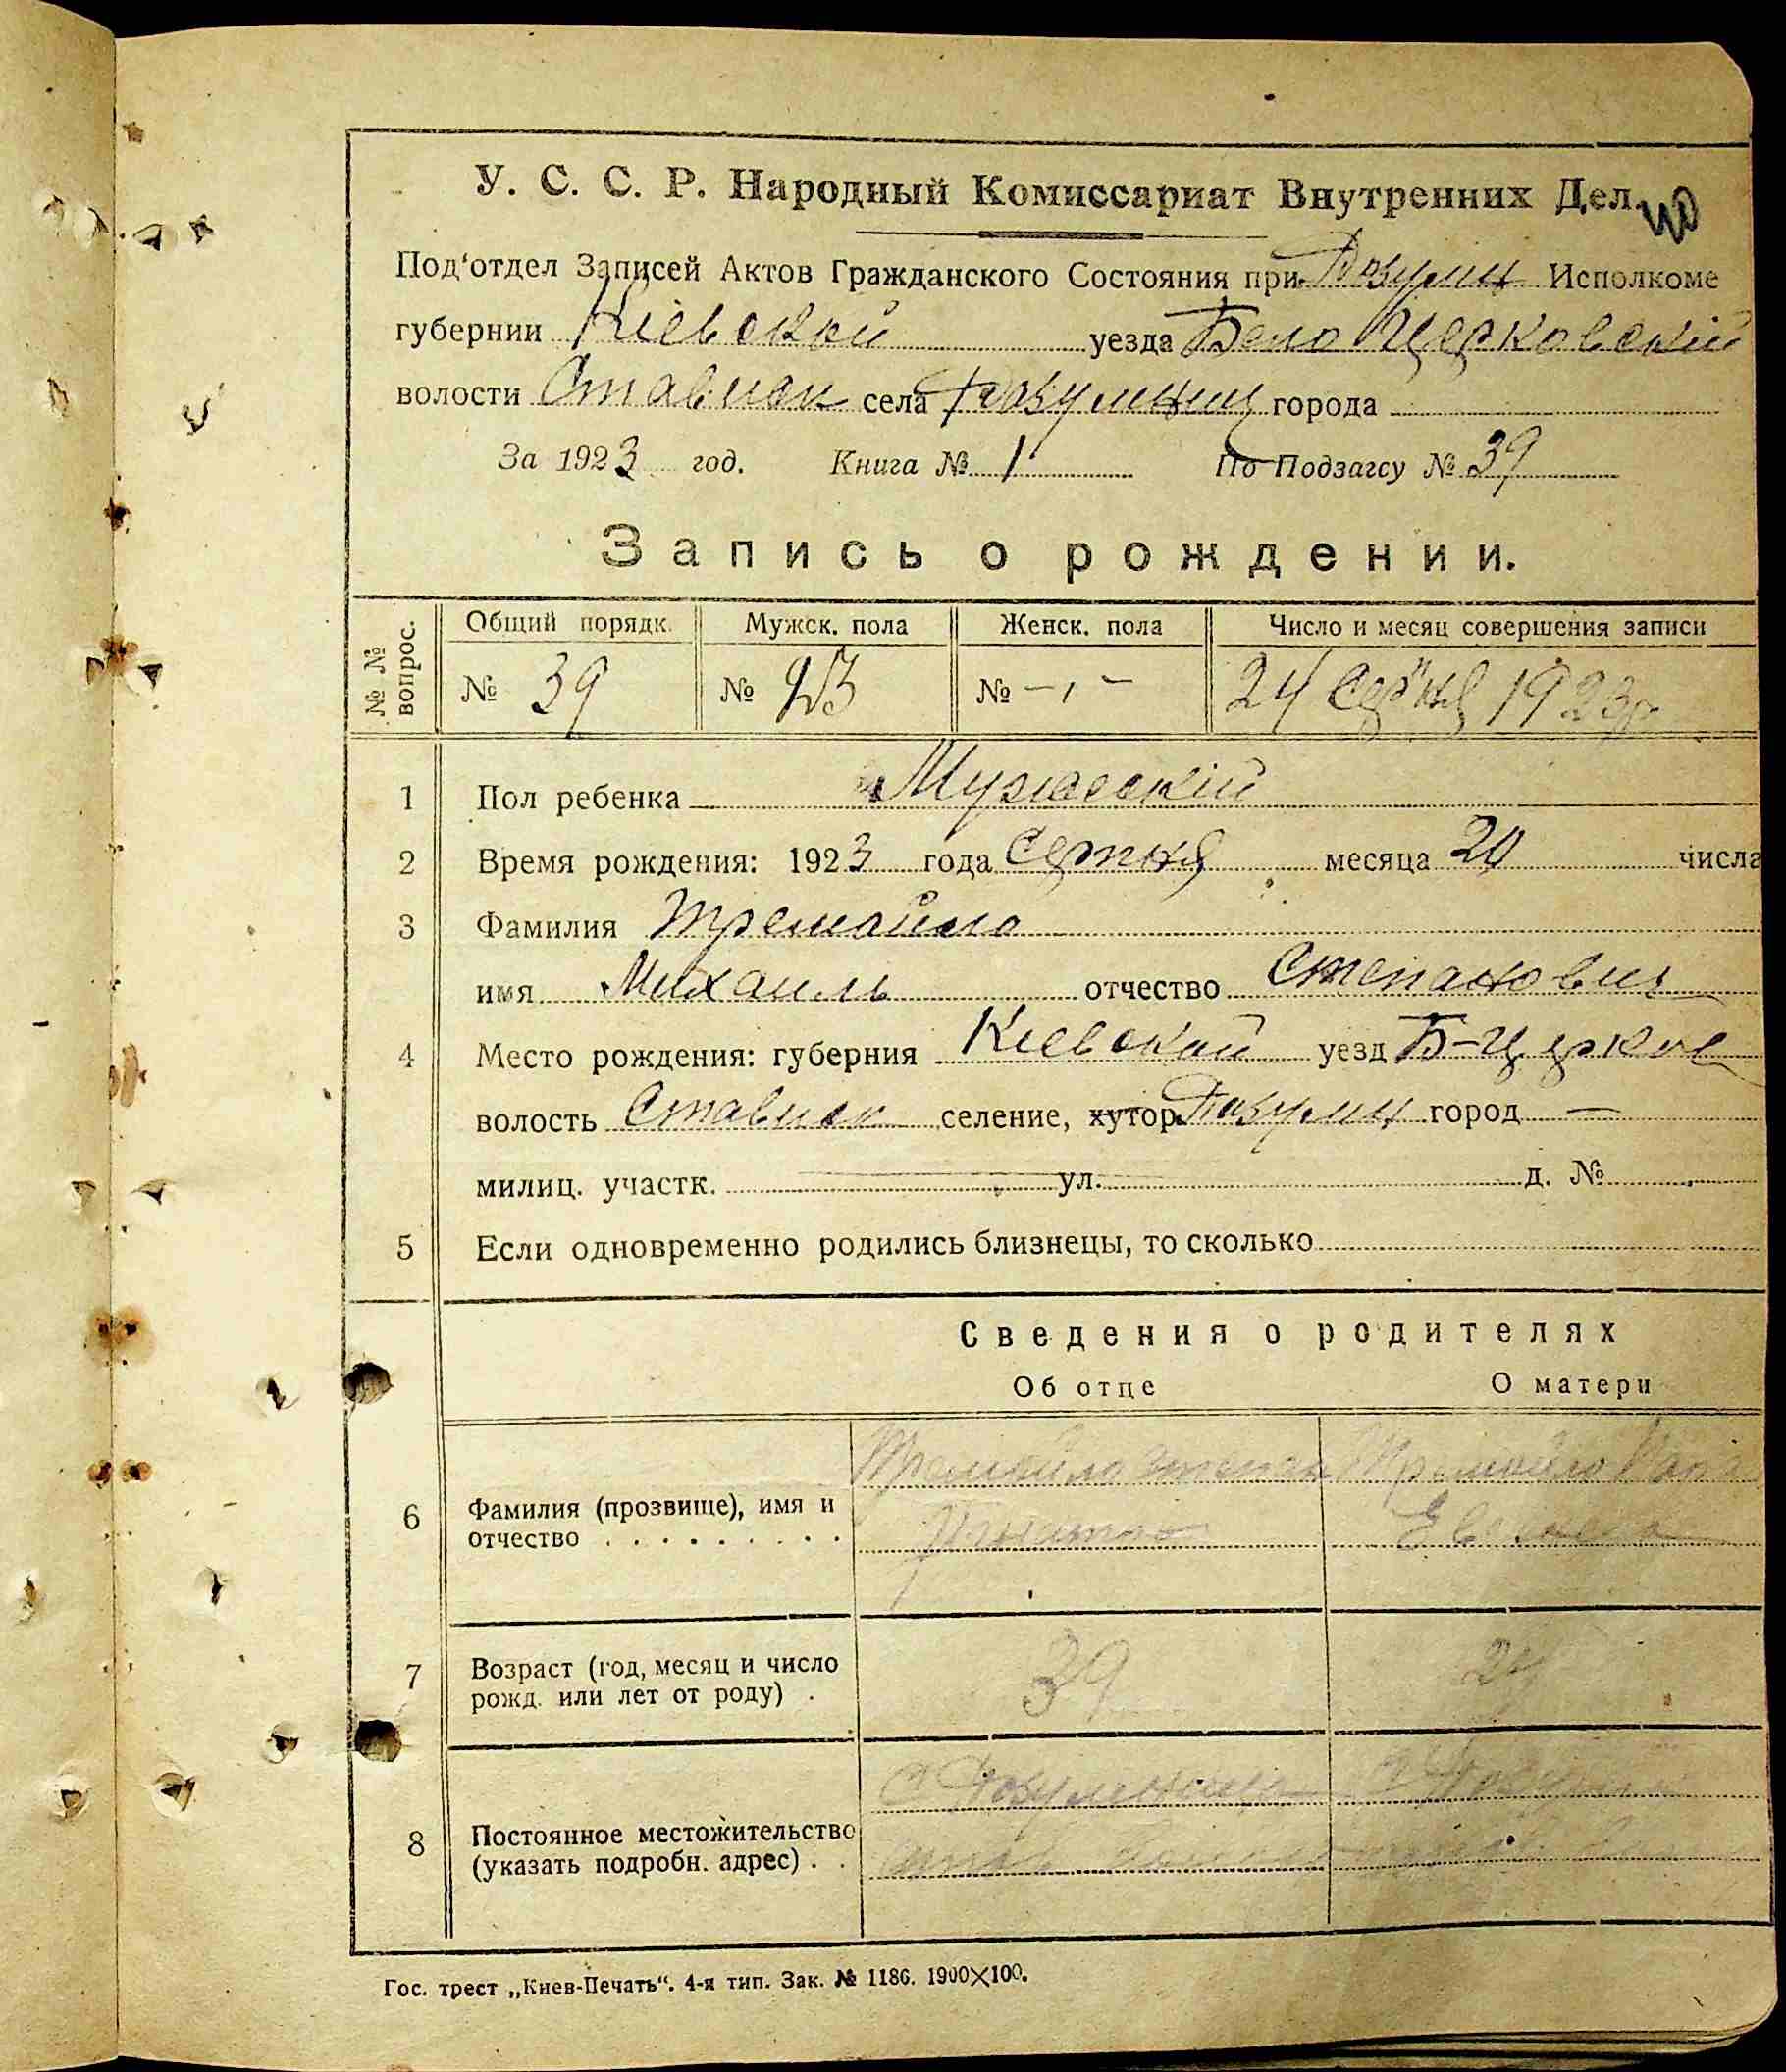 У. С. С. Р. Народный Комиссариат Внутренних Дел.
Под'отдел Записей Актов Гражданского Состояния при Розумн Исполкоме
губернии Киевской уезда Бело Церковский
волости Стависк села города
За 1923 год. Книга № 1 По Подзагсу № 39
Запись о рождении.
№ № вопрос. Общий порядк. Мужск. пола Женск. пола Число и месяц совершения записи
№ 39 № 23 № — 24 Серпня 1923р
1 Пол ребенка Мужеский
2 Время рождения: 1923 года Серпня месяца 20 числа
3 Фамилия Тремайло
имя Михаиль отчество Степанович
4 Место рождения: губерния Киевской уезд Б-Церков
волость Стависк селение, хутор город —
милиц. участк. ул. д. №
5 Если одновременно родились близнецы, то сколько
Сведения о родителях
Об отце О матери
Тремайло Степан Тремойло
6 Фамилия (прозвище), имя и
отчество
7 Возраст (год, месяц и число
рожд. или лет от роду) . 39 29
8 Постоянное местожительство
(указать подробн. адрес) . .
Гос. трест „Киев-Печать“. 4-я тип. Зак. № 1186. 1900×100.